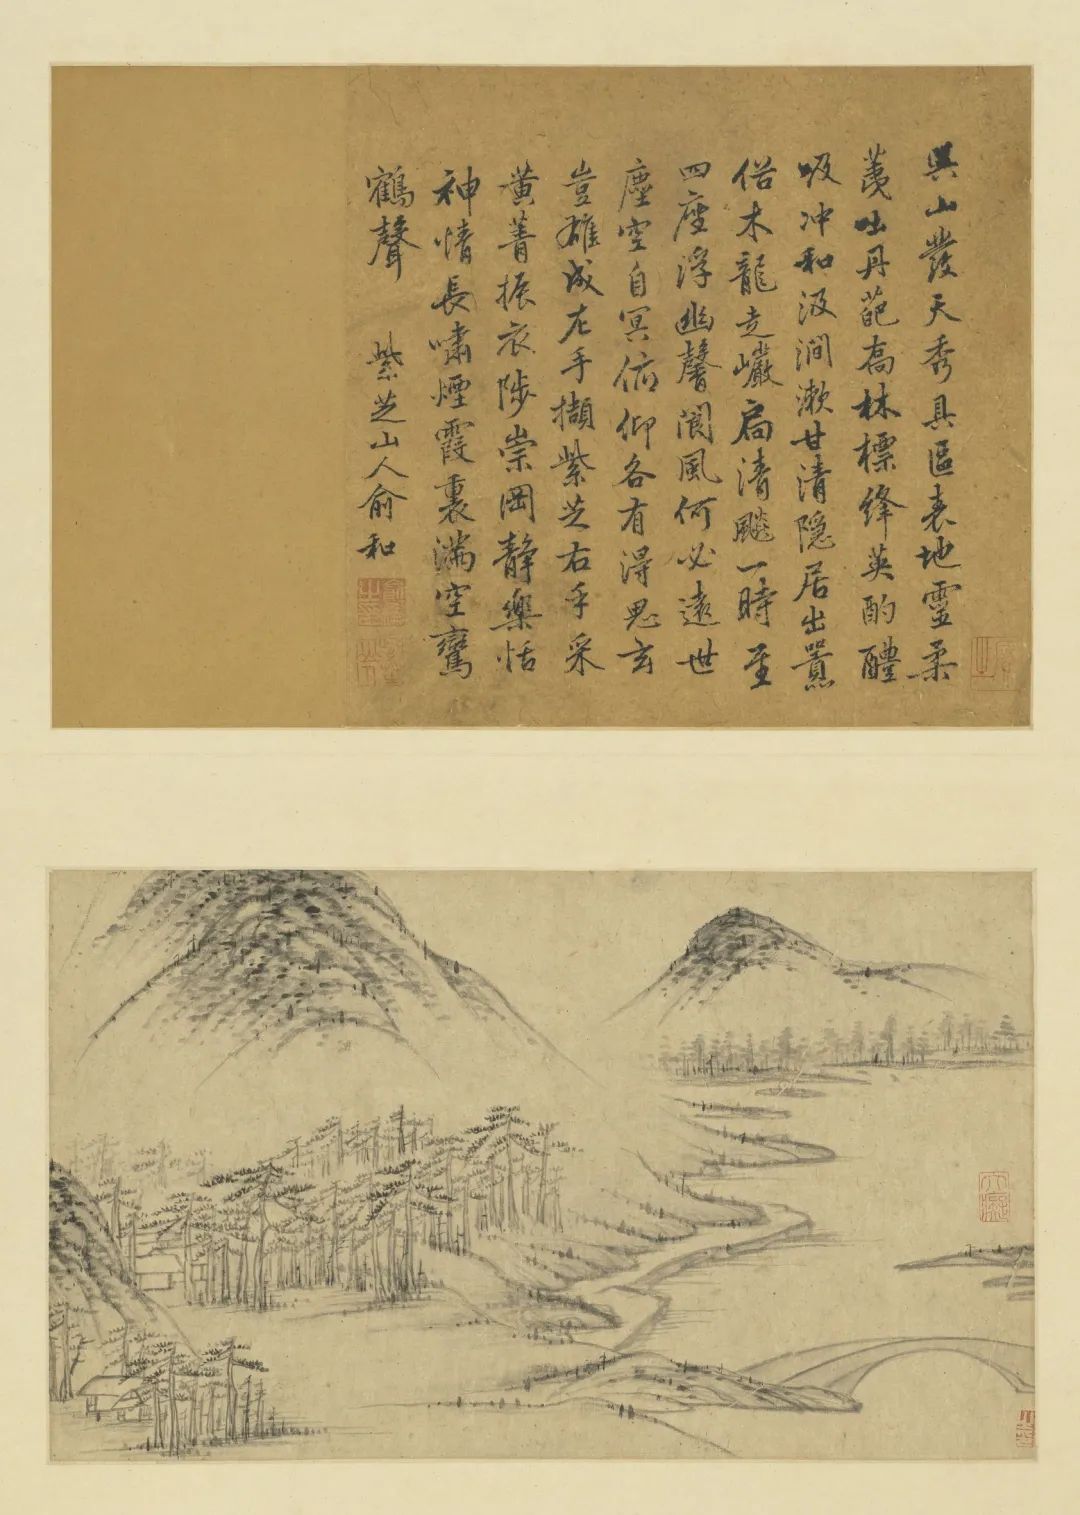 吳山發天秀具區表地靈柔
荑吐丹葩高林標絳英酌醴
吸冲和汲澗漱甘清隱居出囂
俗木龍走巖扃清飈一時至
四座浮幽馨閬風何必遠世
塵空自冥俯仰各有得思玄
豈難成左手擷紫芝右手采
黃菁振衣陟崇岡靜樂恬
神情長嘯煙霞裏滿空鸞
鶴聲 紫芝山人俞和